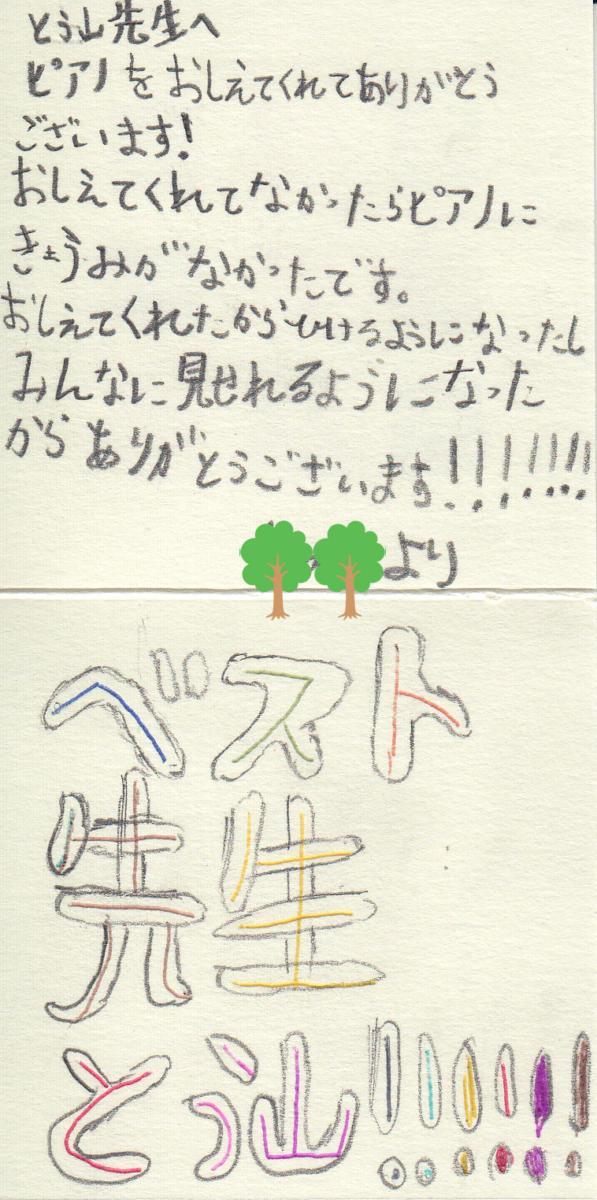 とう山先生へ
ピアノをおしえてくれてありがとう
ございます!
おしえてくれてなかったらピアノに
きょうみがなかったです。
おしえてくれたからひけるようになったし
みんなに見せれるようになった
からありがとうございます!!!!!!!
より
ベスト
先生
とう山!!!!!!